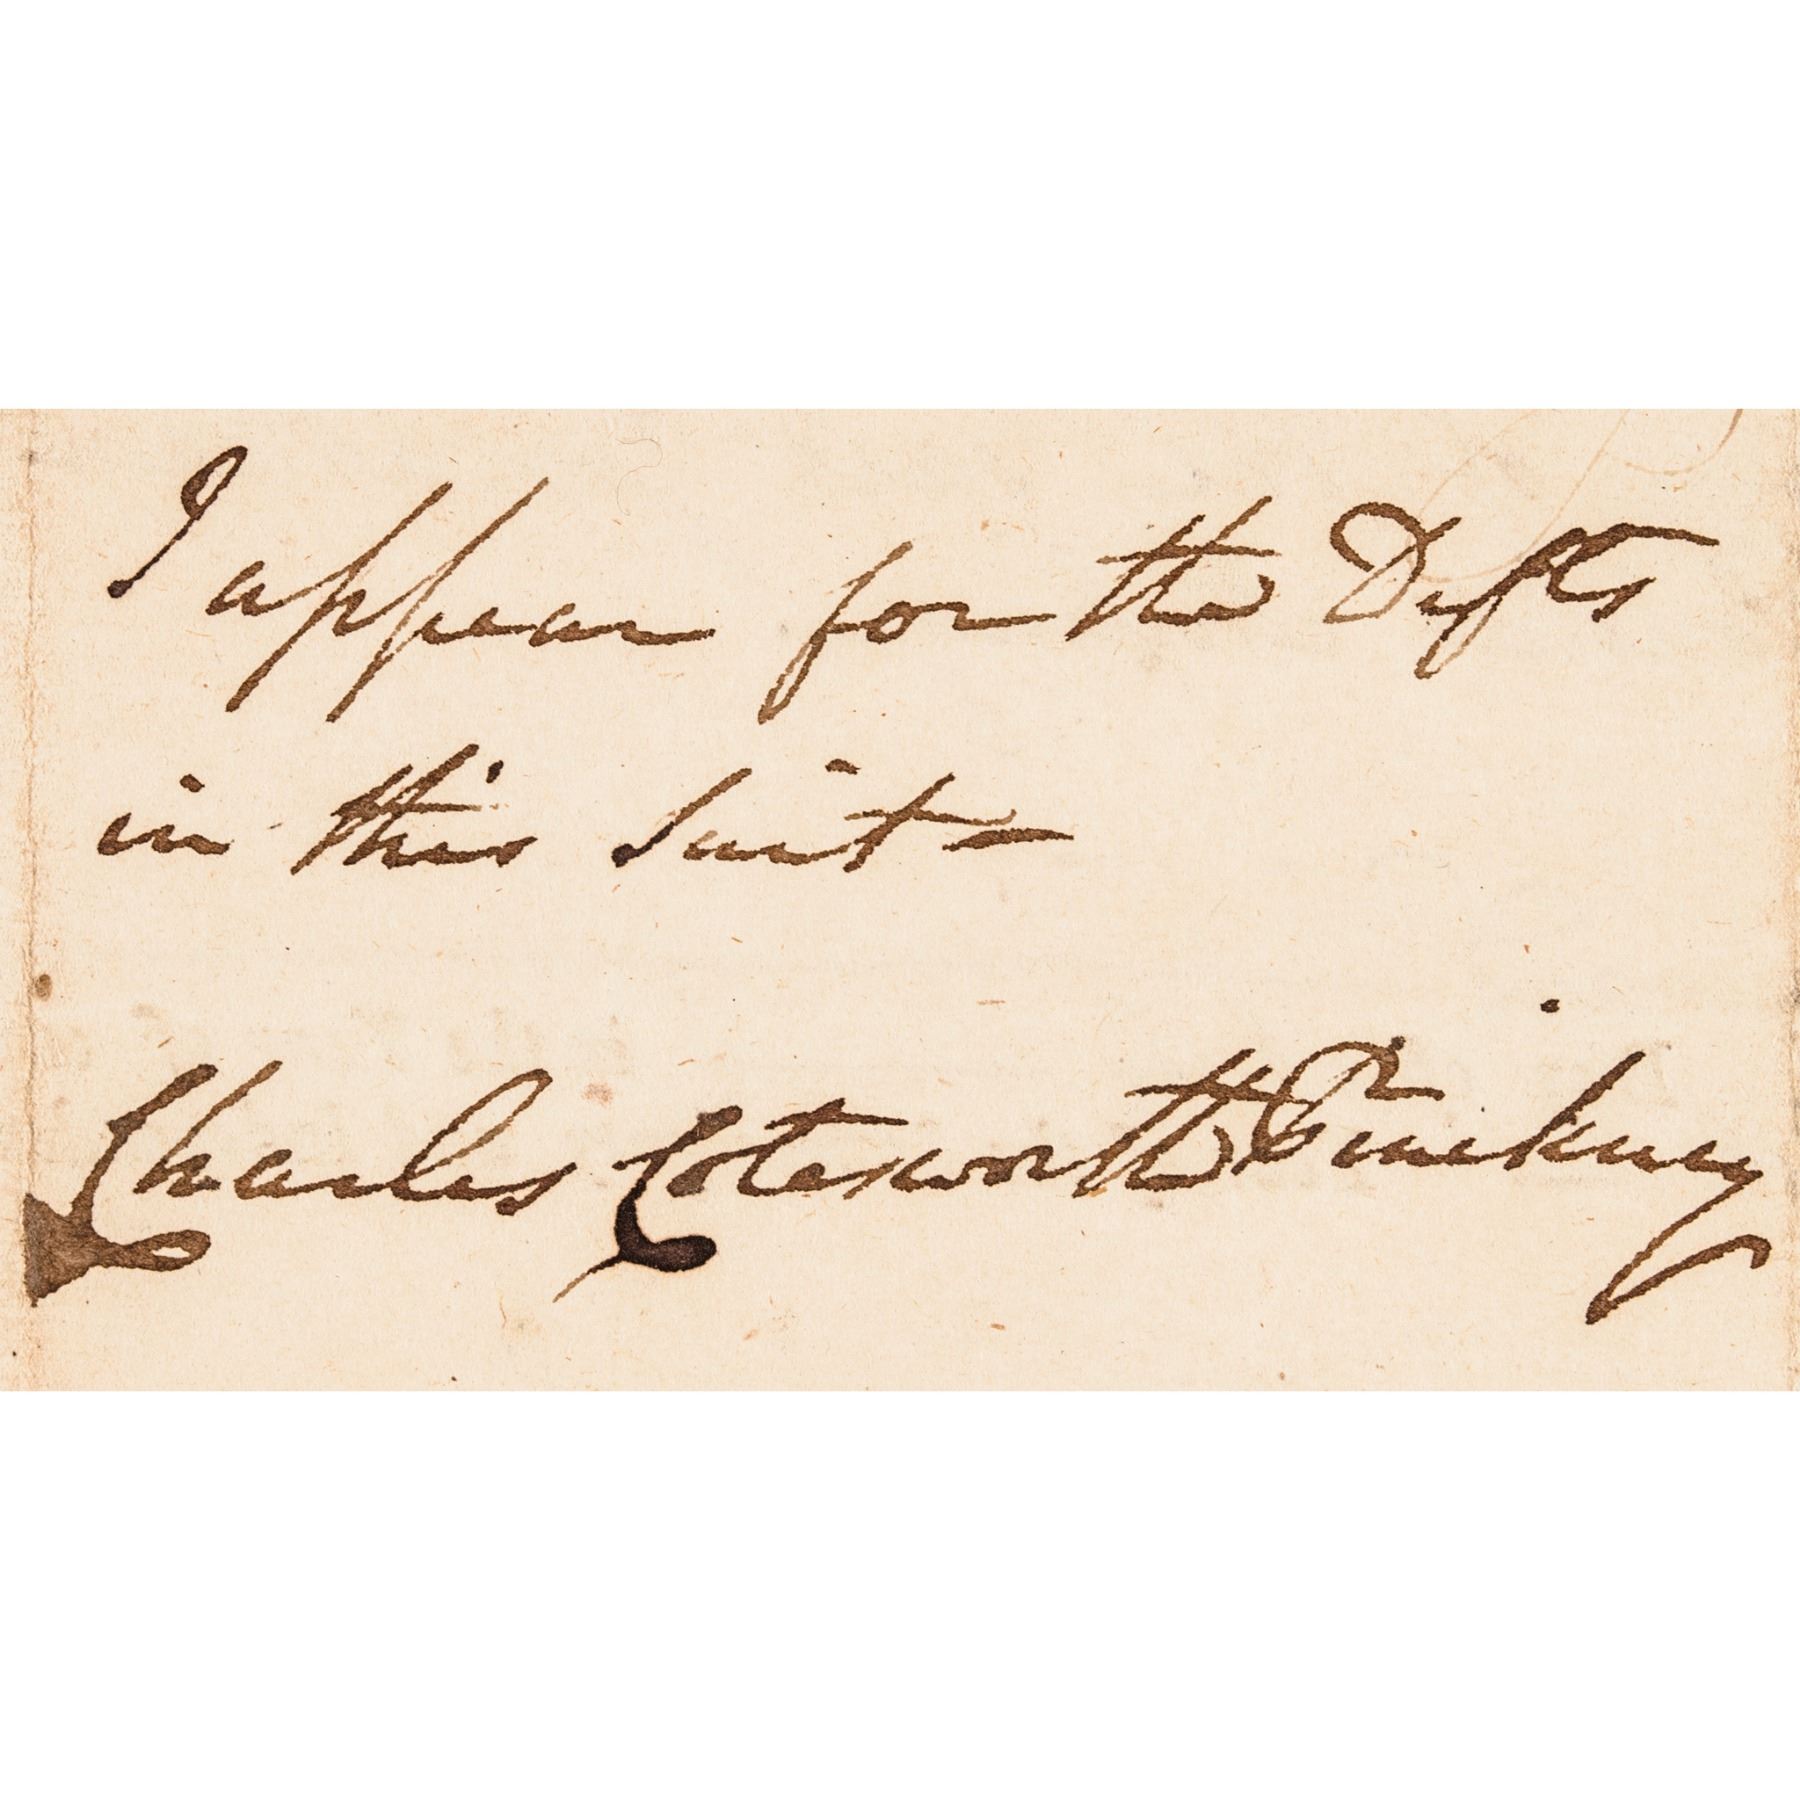 I appear for the Defts
in this Suit —
Charles Cotesworth Pinckney